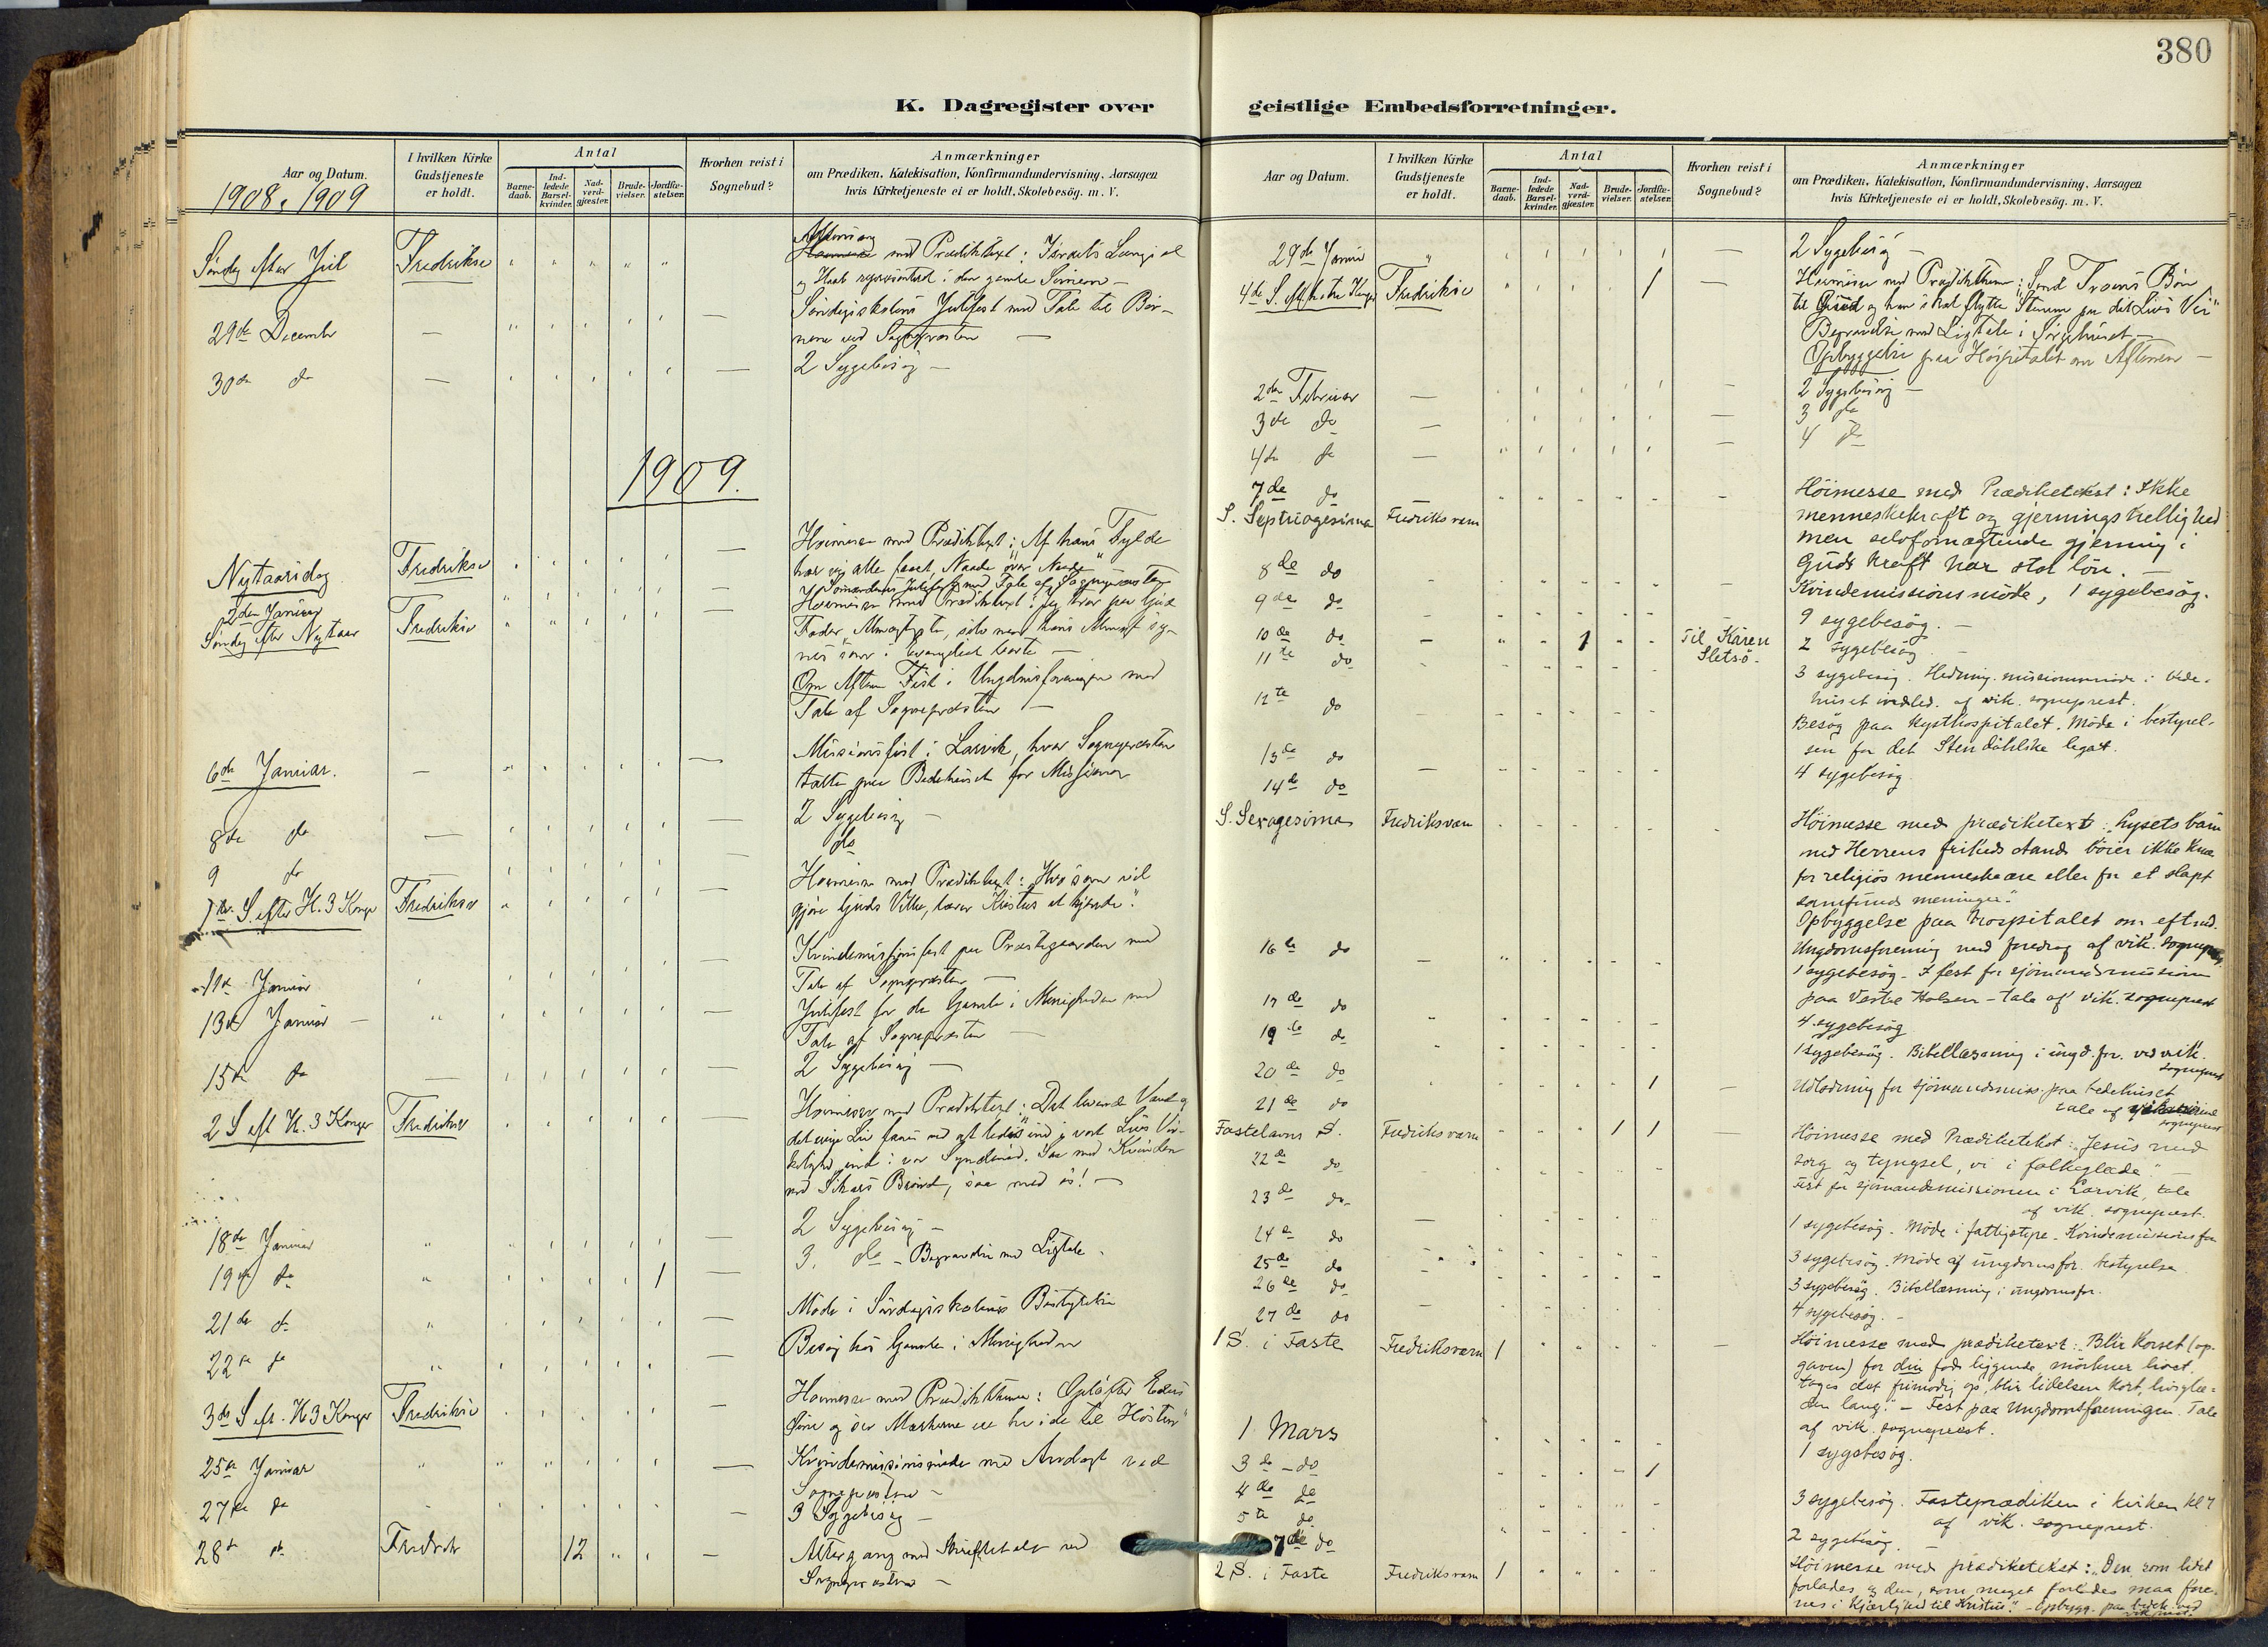 380
K. Dagregister over
geistlige Embedsforretninger.
Aar og Datum.
1908. 1909
I hvilken Kirke
Gudstjeneste
er holdt.
Antal
Barne-
daab.
Ind-
ledede
Barsel-
kvinder.
Nad-
verd-
gjæster.
Brude-
vielser.
Jordfæ-
stelser.
Hvorhen reist i
Sognebud?
Anmærkninger
om Prædiken, Katekisation, Konfirmandundervisning, Aarsagen
hvis Kirketjeneste ei er holdt, Skolebesög. m. V.
Søndag efter Jul Fredriksv Aftensang
med Præditext: Israels Længsel
og Haab repræsenteret i den gamle Simeon —
29de December — Søndagsskolens Julefest med Tale til Bør-
nene ved Sognepræsten —
30de do — 2 Sygebesøg —
1909.
Nytaarsdag Fredriksv — Høimesse med Præditext: Af hans Fylde
har vi alle faaet, Naade over Naade
2den Januar Sømændenes Julefest med Tale af Sognepræsten
Søndag efter Nytaar Fredriksv Høimesse med Præditext: Jeg tror paa Gud
Fader, Almægtigste, selv naar hans Almagt sy-
nes som i Evangeliet borte —
Om Aftenen Fest i Ungdomsforeningen med
Tale af Sognepræsten —
6te Januar. — Missionsfest i Larvik, hvor Sognepræsten
talte paa Bedehuset for Missionen
8de do — 2 Sygebesøg —
9 do do
1ste S. efter H. 3 Konger Fredriksv — Høimesse med Præditext: "Hvo som vil
gjøre Guds Villie, lærer Kristus at kjende".
11te Januar — Kvindemissionsfest paa Præstegaarden med
Tale af Sognepræsten —
13de Januar — Julefest for de Gamle i Menigheden med
Tale af Sognepræsten —
15de do — 2 Sygebesøg —
2 S eft H. 3 Konger Fredriksv — Høimesse med Præditext: "Det levende Vand og
det evige Liv faaes ved at ledes ind i vort Livs Vir-
kelighed, ind i vor Syndenød. Saa med Kvinden
ved Sikars Brønd, saa med os! —
18de Januar — 2 Sygebesøg —
19de do 1 — 3. do — Begravelse med Ligtale.
21de do Møde i Søndagsskolens Bestyrelse
22de do — Besøg hos Gamle i Menigheden
3de S eft. H 3 Konger Fredriksv — Høimesse med Præditthema: Opløfter Eders
Øine og ser Markerne ere hvide til Høsten"
25de Januar — Kvindemissionsmøde med Andagt ved
Sognepræsten —
27de do — 3 Sygebesøg —
28de do Fredrik 12 — Altergang med Skriftetale ved
Sognepræsten —
Aar og Datum.
I hvilken Kirke
Gudstjeneste
er holdt.
Antal
Barne-
daab.
Ind-
ledede
Barsel-
kvinder.
Nad-
verd-
gjæster.
Brude-
vielser.
Jordfæ-
stelser.
Hvorhen reist i
Sognebud?
Anmærkninger
om Prædiken, Katekisation, Konfirmandundervisning, Aarsagen
hvis Kirketjeneste ei er holdt, Skolebesög. m. V.
29de Januar — 2 Sygebesøg —
4de S. eft h. tre Konger Fredriksv 1 — Høimesse med Præditthema: Send Troens Bøn
til Gud og han skal stytte Stormen paa dit Livs Vei"
Begravelse med Ligtale i Sørgehuset —
Opbyggelse paa Hospitalet om Aftenen —
2den Februar — — 2 Sygebesøg —
3de do — — 3 do
4de do — — 4 do
7de do
S. Septuagesima Fredriksværn Höimesse med Prædiketekst: Ikke
menneskekraft og gjerningshellighed
men selvfornægtende gjerning i
Guds kraft har stor lön. —
8de do Kvindemissionsmöde, 1 sygebesög.
9de do 9 sygebesög. —
10de do 1 Til Karen
Sletsö. 2 sygebesög —
11te do 3 sygebesög. Hedning. missionsmöde i bede-
huset indled. af vik. sogneprest.
12te do Besög paa Kysthospitalet. Möde i bestyrel-
sen for det Stendahlske legat.
13de do 4 sygebesög
14de do
S. Sexagesima Fredriksværn Höimesse med prædiketext: "Lysets barn
med Herrens friheds aand böier ikke knæ
for religiös menneskeære eller for et slapt
samfunds meninger."
Opbyggelse paa hospitalet om eftmd.
16de do Ungdomsforening med foredrag af vik. sogneprest
1 sygebesög — I fest for sjömandsmission
17de do paa Vestre Halsen — tale af vik. sogneprest
4 sygebesög
19de do 1 sygebesög. Bibellæsning i ungd. for. ved vik.
sogneprest
20de do 1 — Udlodning for sjömandsmiss. paa bedehuset
21de do tale af
sogneprest
Fastelavns S. Fredriksværn 1 1 Höimesse med Prædiketekst: "Jesus med
22de do sorg og tyngsel, vi i falkeglæde" —
23de do Fest for sjömandsmissionen i Larvik, tale
af vik. sogneprest.
24de do 1 sygebesög. Möde i fattigstyre. Kvindemissionsfor
25de do 3 sygebesög. Möde af ungdomsfor. bestyrelse.
26de do 3 sygebesög. Bibellæsning i ungdomsfor.
27de do 4 sygebesög. —
1 S. i Faste Fredriksværn 1 — Höimesse med prædiketext: "Blir korset (op-
gaven) for din fod liggende mörkner livet,
tages det frimodig op, blir lidelsen kort, livsglæ-
den lang." — Fest paa Ungdomsforeningen. Tale
af vik. sogneprest.
1 Mars 1 sygebesög.
3de do 1
4de do 3 sygebesög. Fasteprædiken i kirken kl 7
af vik. sogneprest.
5te do 2 sygebesög. —
7de do
2 S. i Faste Fredriksværn 1 Höimesse med prædiketekst: "Den som lidet
forlades, og den, som meget forlades maa fore-
nes i Kjærlighed til Kristus." — Opbygg. paa bedeh. ved
vik. prest.